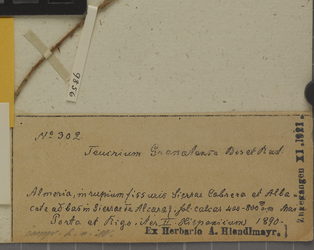 9856
No 302
Teucrium Granatense Boiss et Reut
Almeria, in rupium fissuris Sierras Cabrera et Alba
cete ad basin Sierra de Alcaraz, sol. calcar. 400-800 m. Mai
Porta et Rigo iter II Hispanicum 1890.
Ex Herbario A. Hiendlmayr.
Zugegangen XI.1921.